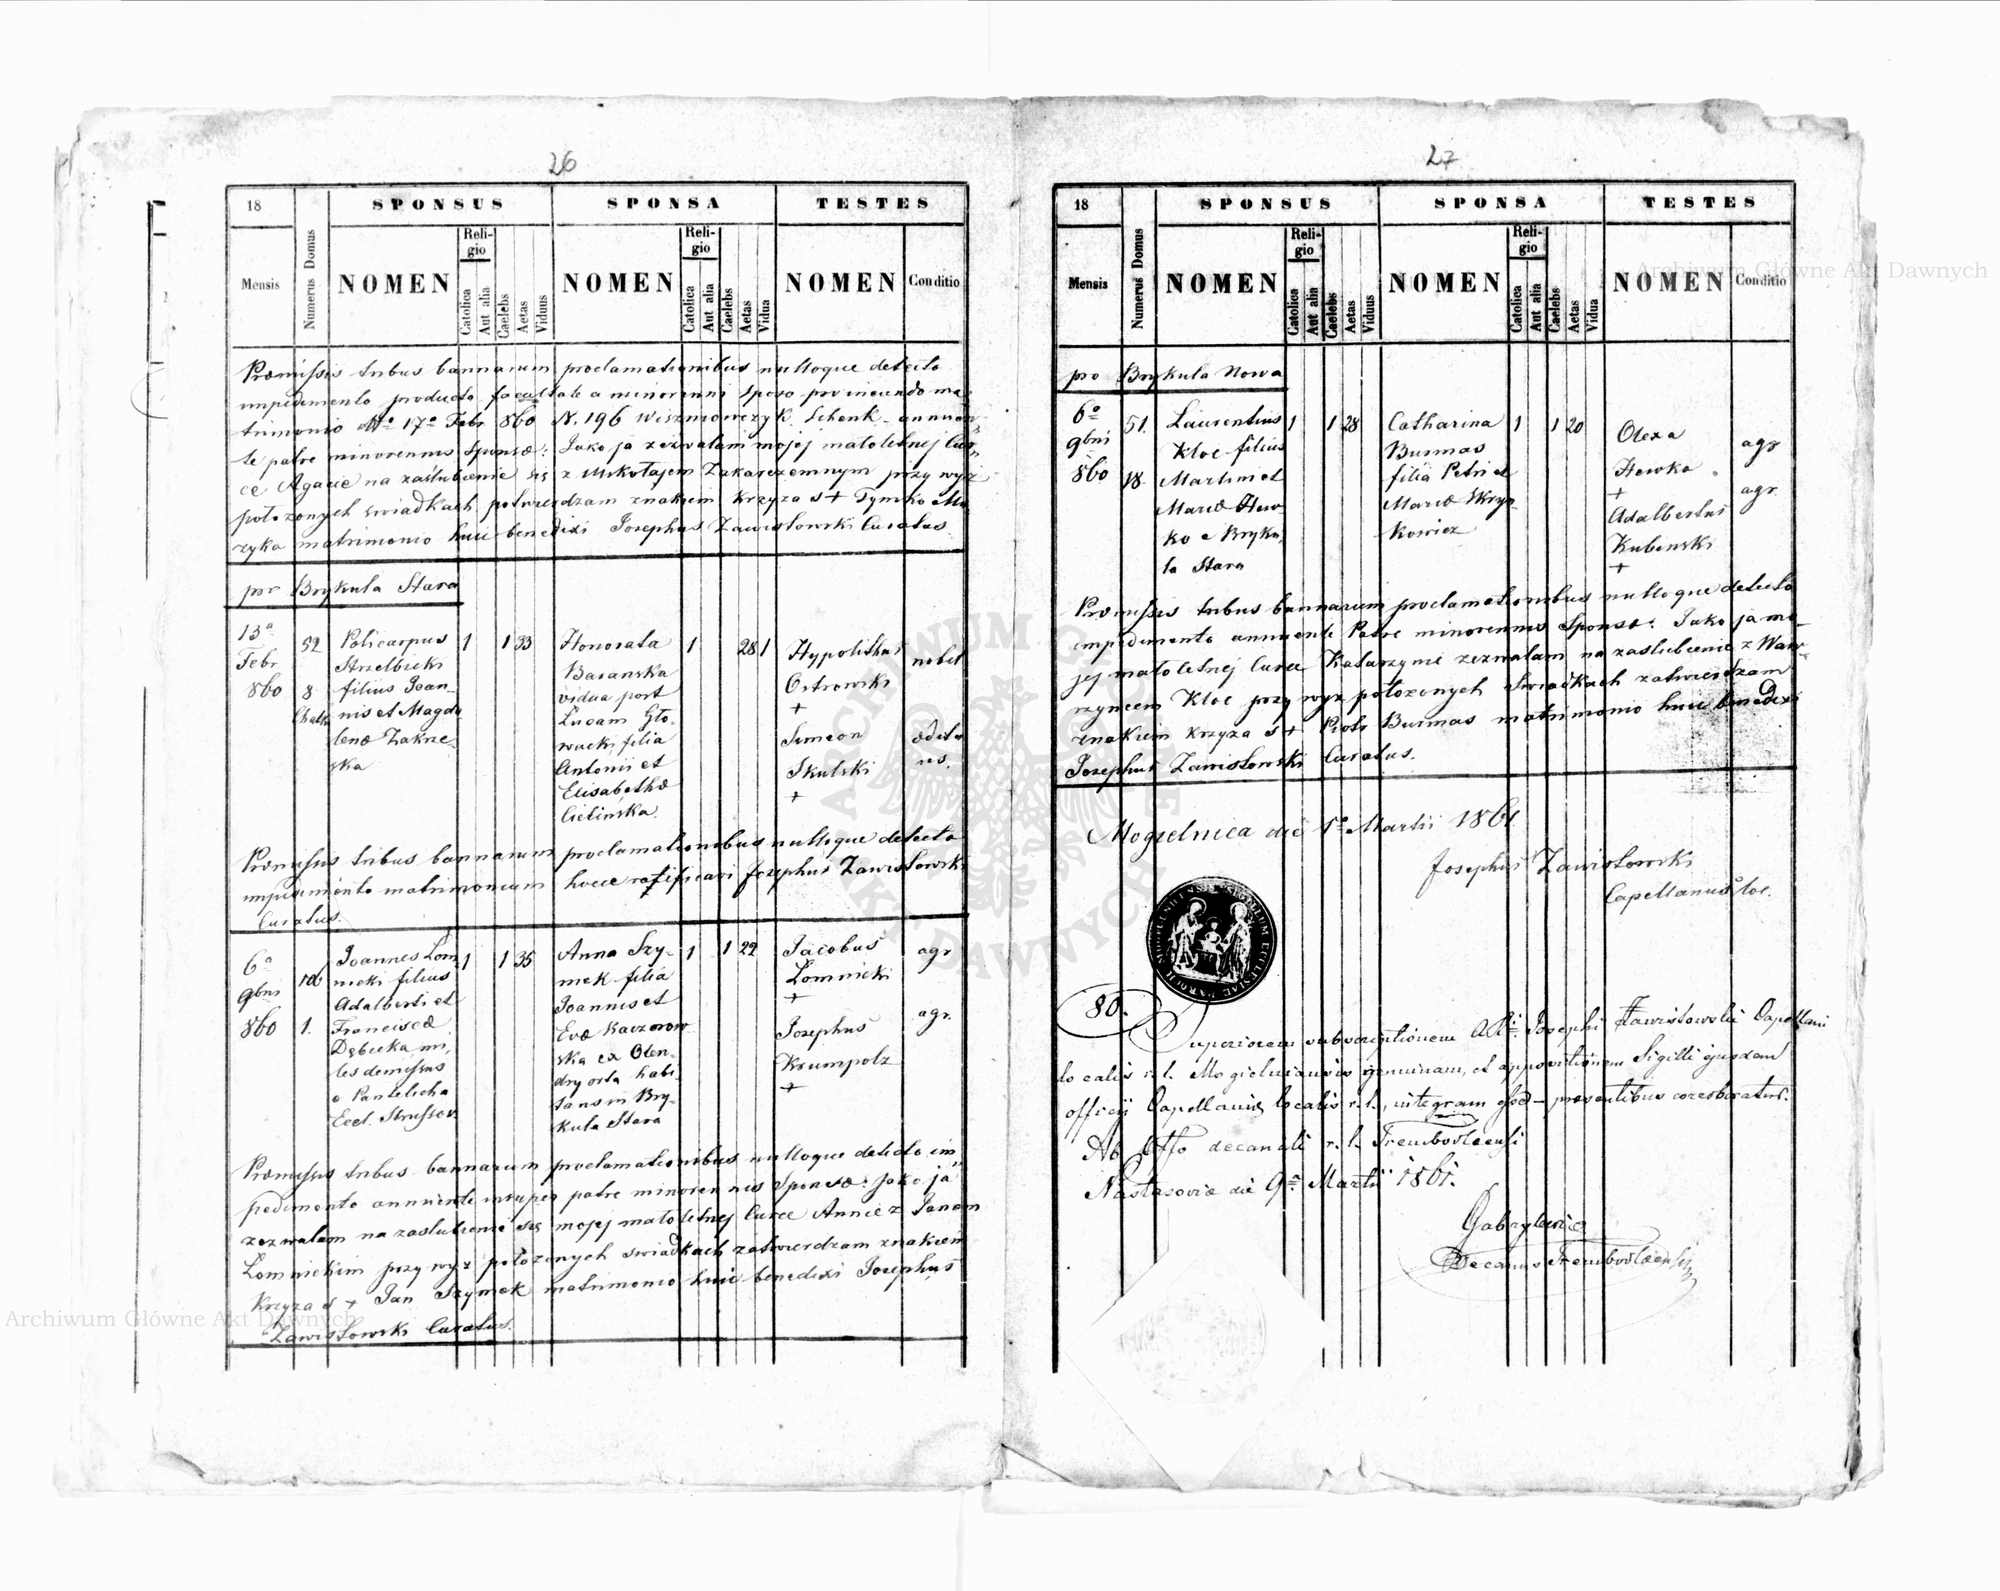 26
18
Mensis
Numerus Domus
SPONSUS
NOMEN
Religio
Catolica
Aut alia
Caelebs
Aetas
Viduus
SPONSA
NOMEN
Religio
Catolica
Aut alia
Caelebs
Aetas
Vidua
TESTES
NOMEN
Conditio
Præmissis tribus bannarum proclamationibus nulloque detecto
impedimento producta facultate a minorenni sposo pro ineundo ma
trimonio 17a Febr 860 N. 196 Wiszniowczyk Schenk annuen
te patre minorennis Sponsæ: Jako ja zezwalam mojej małoletnej Cur
ce Agacie na zaślubienie się z Mikołajem Zakarczemnym przy wyż
położonych świadkach potwierdzam znakiem krzyża s+ Tymko Mu
zyka matrimonio huic benedixi Josephus Zawisłowski Curatus
pro Brykula Stara
13a
Febr
860
52
8
Policarpus
Strzelbicki
filius Joan
nis et Magda
lenæ Zakrze
ska
1 1 33
Honorata
Baranska
vidua post
Lucam Gło
wacki filia
Antonii et
Elisabethæ
Cielinska.
1 28 1
Hypolithus
Ostrowski
+
Simeon
Skulski
+
nobil
æditu
us.
Præmissis tribus bannarum proclamationibus nulloque detecto
impedimento matrimonium hocce ratificavi Josephus Zawisłowski
Curatus.
6a
9bris
860
106
1.
Joannes Lom
nicki filius
Adalberti et
Franciscæ
Dębicka mi,
les demissus
e Pantelicha
Eccl. Strussow
1 1 35
Anna Szy-
mek filia
Joannis et
Evæ Kaczorow
ska ex Olen-
dry orta habi-
tans in Bry-
kula Stara
1 1 22
Jacobus
Lomnicki
+
Josephus
Krumpolz
+
agr
agr.
Præmissis tribus bannarum proclamationibus nulloque detecto im
pedimento annuente insuper patre minorennis Sponsæ: Jako ja
zezwalam na zaslubienie się mojej małoletnej Curce Annie z Janem
Lomnickim przy wyż położonych swiadkach zatwierdzam znakiem
Krzyża s + Jan Szymek matrimonio huic benedixi Josephus
Zawisłowski Curatus.
27
18
Mensis
Numerus Domus
SPONSUS
NOMEN
Religio
Catolica
Aut alia
Caelebs
Aetas
Viduus
SPONSA
NOMEN
Religio
Catolica
Aut alia
Caelebs
Aetas
Vidua
TESTES
NOMEN
Conditio
pro Brykula Nowa
6a
9bris
860
51.
18.
Laurentius
Kloc filius
Martini et
Mariæ Hew
ko e Bryku,
la Stara
1 1 28
Catharina
Burmas
filia Petri et
Mariæ Skry
kowicz
1 1 20
Olexa
Hewko
+
Adalbertus
Kubinski
+
agr
agr.
Præmissis tribus bannarum proclamationibus nulloque detecto
impedimento annuente Patre minorennis Sponsæ: Jako ja mo-
jej małoletnej Curce Katarzynie zezwalam na zaslubienie z Waw-
rzyncem Kloc przy wyż położonych Swiadkach zatwierdzam
znakiem krzyża s + Piotr Burmas matrimonio huic benedixi
Josephus Zawisłowski Curatus.
Mogielnica die 1a Martii 1861.
Josephus Zawisłowski
Capellanus loc.
80.
Superiorem subscriptionem Josephi Zawisłowski Capellani
localis r. l. Mogielnicensis genuinam, et appositionem Sigilli ejusdem
officii Capellaniæ localis r. l., integram esse præsentibus corroboratur.
Ab Offo decanali r. l. Trembovlensi
Nastasoviæ die 9a Martii 1861.
Gabrylewicz
Decanus Trembovlensis
Archiwum Główne Akt Dawnych
Archiwum Główne Akt Dawnych
ARCHIWUM GŁÓWNE AKT DAWNYCH